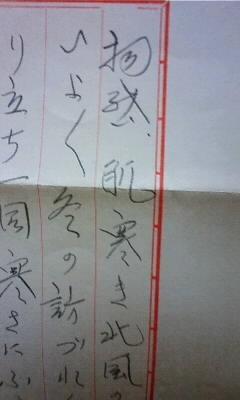 拘啓、肌寒き北風の
いよ〱冬の訪づれ
り立ち一同寒さにふ